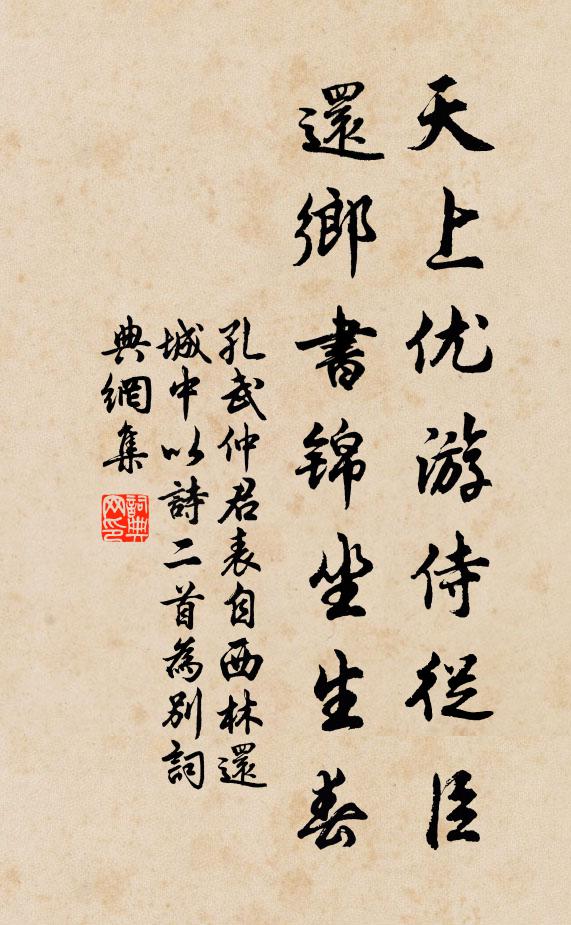 天上优游侍從臣
還鄉書锦坐生春
孔武仲君表自西林還
城中以詩二首為別詞
典網集
詞典网印